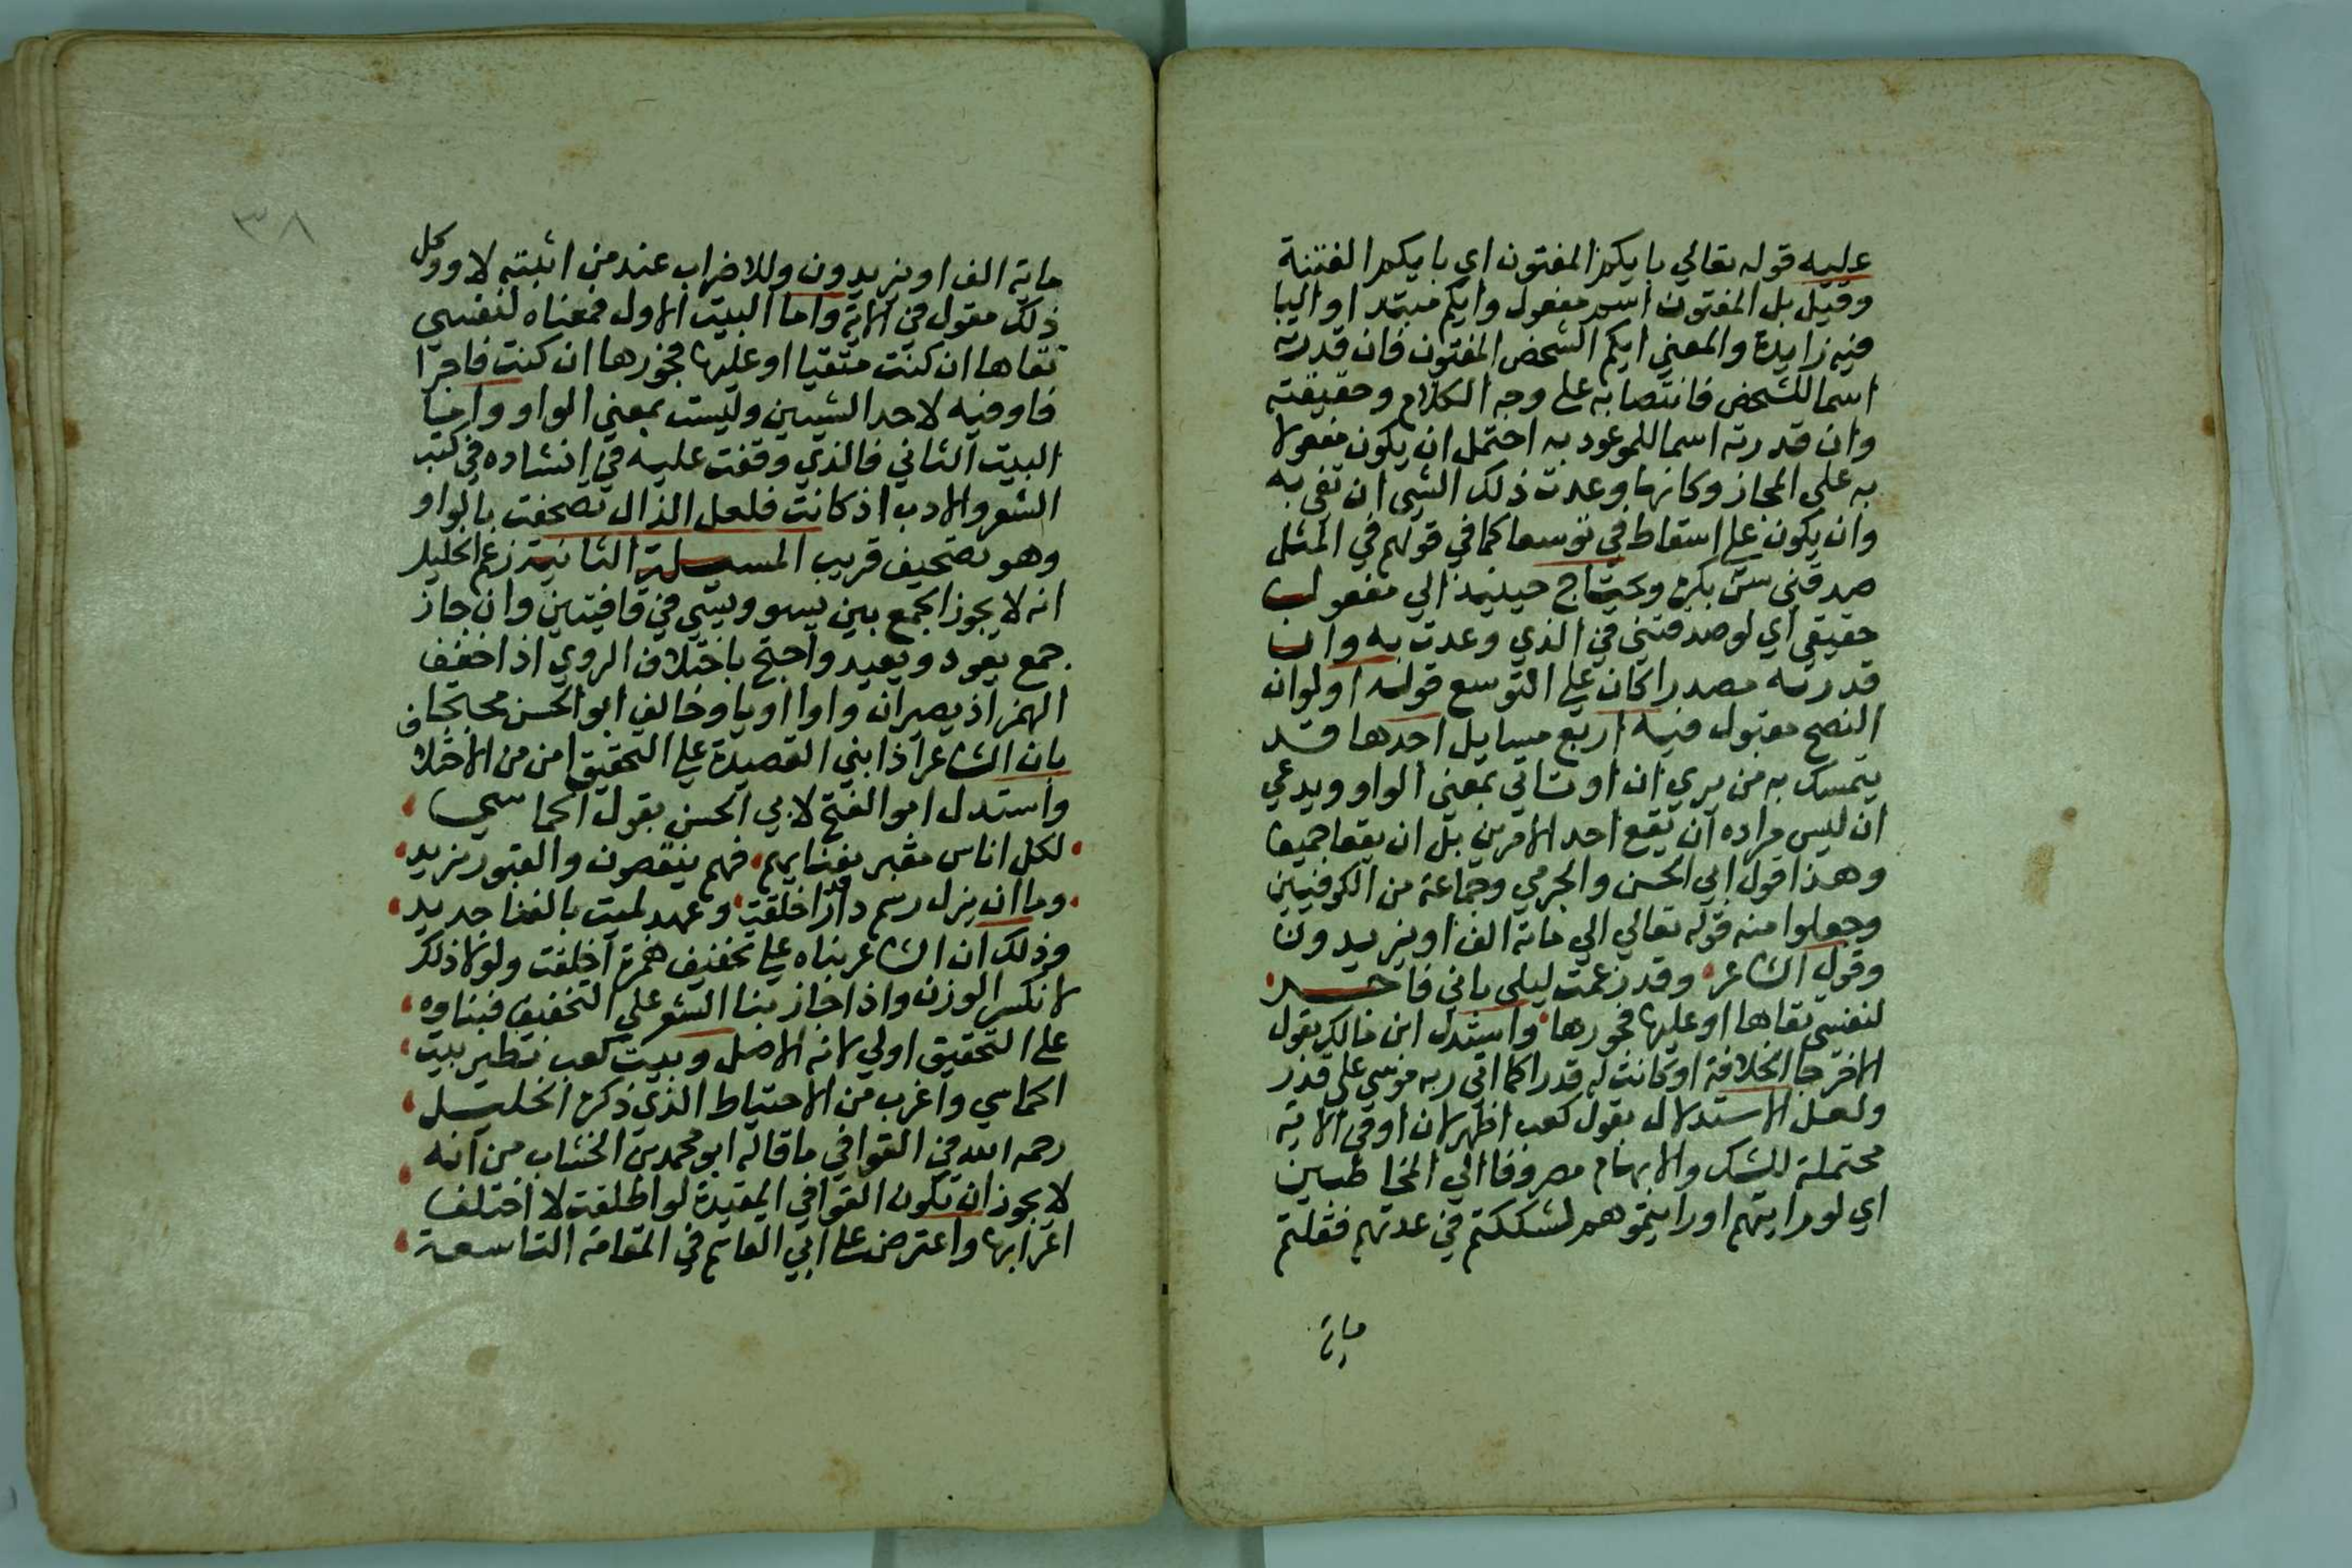 عليه قوله تعالي بايكم المفتون اي بايكم الفتنة
وقيل بل المفتون اسم مفعول وايكم مبتدا والبا
فيه زايدة والمعني ايكم الشخص المفتون فان قدرته
اسما للشخص فانتصابه علي وجه الكلام وحقيقته
وان قدرته اسما للموعود به احتمل ان يكون مفعولا
به علي المجاز وكانها وعدت ذلك الشي ان تفي به
وان يكون علي اسقاط في توسعا كما في قولهم في المثل
صدقني سن بكره ويحتاج حينيذ الي مفعول
حقيقي اي لو صدقتني في الذي وعدت به وان
قدرته مصدرا كان علي التوسع قوله اولوان
النصح مقبول فيه اربع مسايل احدها قد
يتمسك به من يري ان او تاتي بمعني الواو ويدعي
ان ليس مراده ان يقع احد الامرين بل ان يقعا جميعا
وهذا قول ابي الحسن والجرمي وجماعة من الكوفيين
وجعلوا منه قوله تعالي الي ماية الف او يزيدون
وقول الشاعر وقد زعمت ليلي باني فاجر
لنفسي تقاها او عليها فجورها واستدل ابن مالك بقول
الاخر جا الخلافة او كانت له قدرا كما اتي ربه موسي علي قدر
ولعل الاستدلال بقول كعب اظهر لان او في الاية
محتملة للشك والابهام مصروفا الي المخاطبين
اي لو رايتهم او رايتموهم لشككتم في عدتهم فقلتم
ماية
٣٨
ماية الف او يزيدون وللاضراب عند من اثبته لا وو كل
ذلك مقول في الاية واما البيت الاول فمعناه لنفسي
تقاها ان كنت متقيا او عليها فجورها ان كنت فاجرا
فاو فيه لاحد الشيين وليست بمعني الواو واما
البيت الثاني فالذي وقفت عليه في انشاده في كتب
الشعر والادب اذ كانت فلعل الذال تصحفت بالواو
وهو تصحيف قريب المسيلة الثانية زعم الخليل
انه لا يجوز الجمع بين يسو ويسي في قافيتين وان جاز
جمع يعود ويعيد واحتج باختلاف الروي اذا خفف
الهمز اذ يصيران واوا او يا وخالفه ابو الحسن محتجا
بان الشاعر اذا بني القصيدة علي التحقيق امن من الاختلاف
واستدل ابو الفتح لابي الحسن بقول الحماسي
لكل اناس مقبر بفنايهم فهم ينقصون والقبور تزيد
وما ان يزل رسم دار قد اخلقت وعهد لميت بالفنا جديد
وذلك ان الشاعر بناه علي تخفيف همزة اخلقت ولولا ذلك
لانكسر الوزن واذا جاز بنا الشعر علي التخفيف فبناوه
علي التحقيق اولي لانه الاصل وبيت كعب نظير بيت
الحماسي واغرب من الاحتياط الذي ذكره الخليل
رحمه الله في القوافي ما قاله ابو محمد بن الخشاب من انه
لا يجوز ان تكون القوافي المقيدة لو اطلقت لا اختلف
اعرابها واعترض علي ابي القاسم في المقامة التاسعة